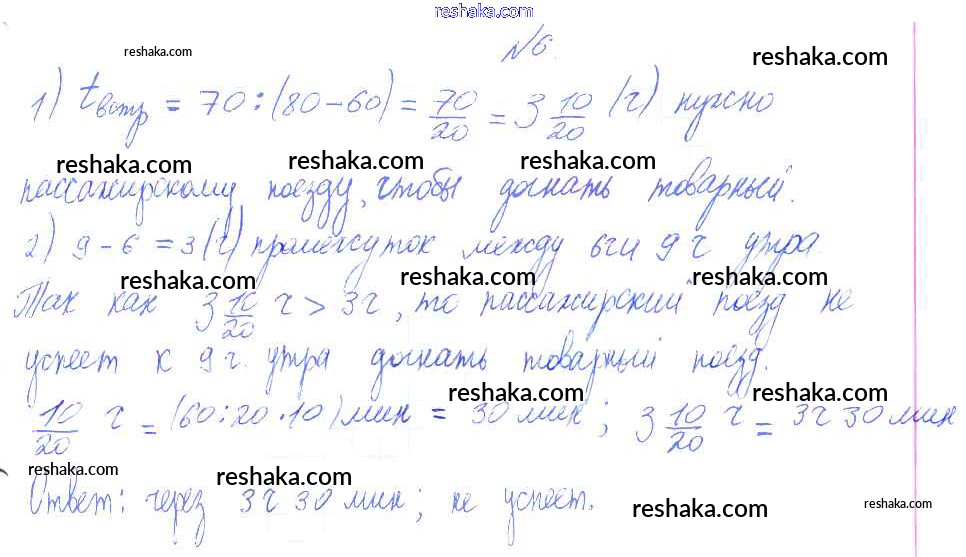 reshaka.com
№6.
reshaka.com
reshaka.com
1) tвстр = 70:(80-60) = 70/20 = 3 10/20 (ч) нужно
reshaka.com reshaka.com reshaka.com
пассажирскому поезду, чтобы догнать товарный.
2) 9-6=3(ч) промежуток между 6ч и 9 ч утра
reshaka.com reshaka.com reshaka.com
Так как 3 10/20 ч > 3ч, то пассажирский поезд не
успеет к 9 ч. утра догнать товарный поезд.
reshaka.com reshaka.com
10/20 ч = (60:20·10) мин = 30 мин; 3 10/20 ч = 3ч 30 мин
reshaka.com reshaka.com
Ответ: через 3ч 30 мин; не успеет.
reshaka.com reshaka.com